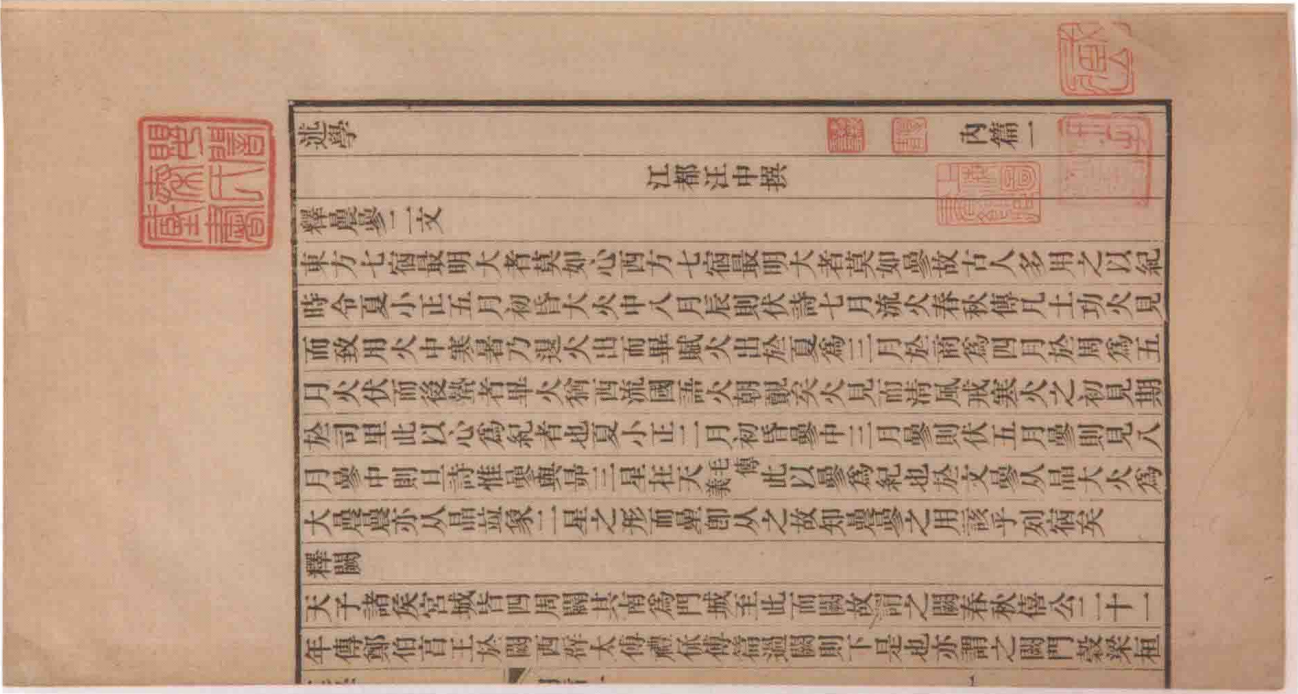 述學 內篇一
江都汪中撰
釋曟曑二文
東方七宿最明大者莫如心西方七宿最明大者莫如曑故古人多用之以紀
時令夏小正五月初昏大火中八月辰則伏詩七月流火春秋傳凡土功火見
而致用火中寒暑乃退火出而畢賦火出於夏爲三月於商爲四月於周爲五
月火伏而後蟄者畢火猶西流國語火朝覿矣火見而淸風戒寒火之初見期
於司里此以心爲紀者也夏小正二月初昏曑中三月曑則伏五月曑則見八
月曑中則旦詩惟曑與昴三星在天毛傳義此以曑爲紀也於文曑从晶大火爲
大曟曟亦从晶竝象二星之形而曐卽从之故知曟曑之用該乎列宿矣
釋闕
天子諸矦宮城皆四周闕其南爲門城至此而闕故謂之闕春秋僖公二十一
年傳鄭伯亯王於闕西辟大戴禮保傅篇過闕則下是也亦謂之闕門穀梁桓